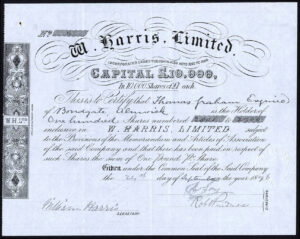 Nº
W. Harris, Limited.
CAPITAL £10,000,
In 10,000 Shares of £1 each.
This is to Certify that Thomas Graham Esquire
of Bondgate Alnwick is the Holder
of One hundred Shares numbered
inclusive in W. HARRIS, LIMITED subject
to the Provisions of the Memorandum and Articles of Association
of the said Company and that there has been paid in respect of
such Shares the sum of One pound per Share
Given under the Common Seal of the said Company
the day of September 189
William Harris
SECRETARY
W H Ltd.